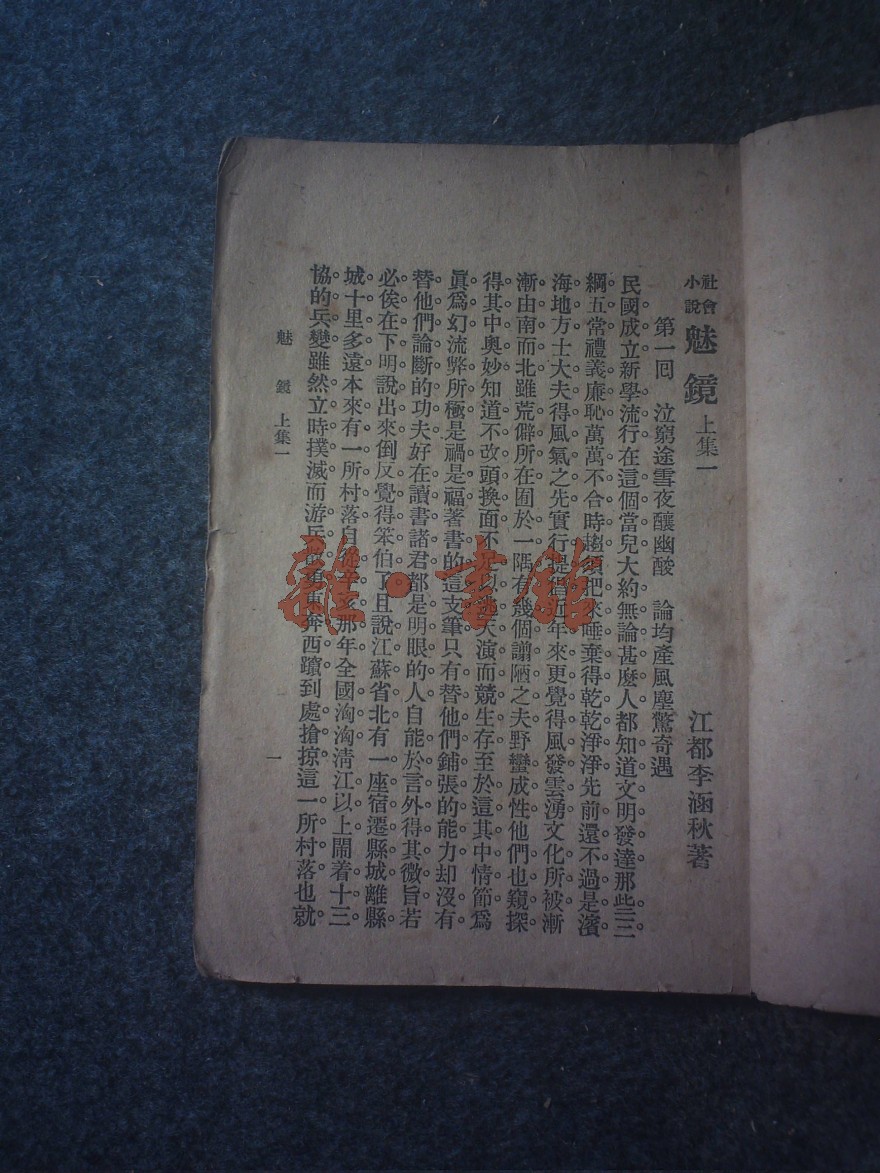 社會小說 魅鏡 上集一 江都李涵秋著
第一回 泣窮途雪夜釀幽酸 論均產風塵驚奇遇
民國成立新學流行在這個當兒大約無論甚麼人都知道文明發達那些三
綱五常禮義廉恥萬萬不合時趨須把來唾棄得乾乾淨淨先前還不過是濱
海地方士大夫得風氣之先實行提倡近年來更覺得風發雲湧文化所被漸
漸由南而北雖荒僻所在囿於一隅有幾個譾陋之夫野蠻成性他們也窺探
得其中奧妙知道不改頭換面不足以 天演而競生存至於這其中情節爲
眞爲幻流弊所極是禍是福著書的這支筆只有替他們鋪張的能力却沒有
替他們論斷的功夫好在讀書諸君都是明眼的人自能於言外得其微旨若
必俟在下明說出來倒反覺得笨伯了且說江蘇省北有一座宿遷縣城離縣
城十里多遠本來有一所村落自從辛亥那年全國洶洶淸江以上鬧着十三
協的兵變雖然立時撲滅而游兵 勇東奔西躥到處搶掠這一所村落也就
魅鏡 上集一
一
雜·書館